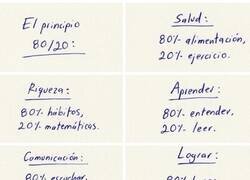 El principio
80/20:
Salud:
80% alimentación,
20% ejercicio.
Riqueza:
80% hábitos,
20% matemáticas.
Aprender:
80% entender,
20% leer.
Comunicación:
80% escuchar,
Lograr:
80%